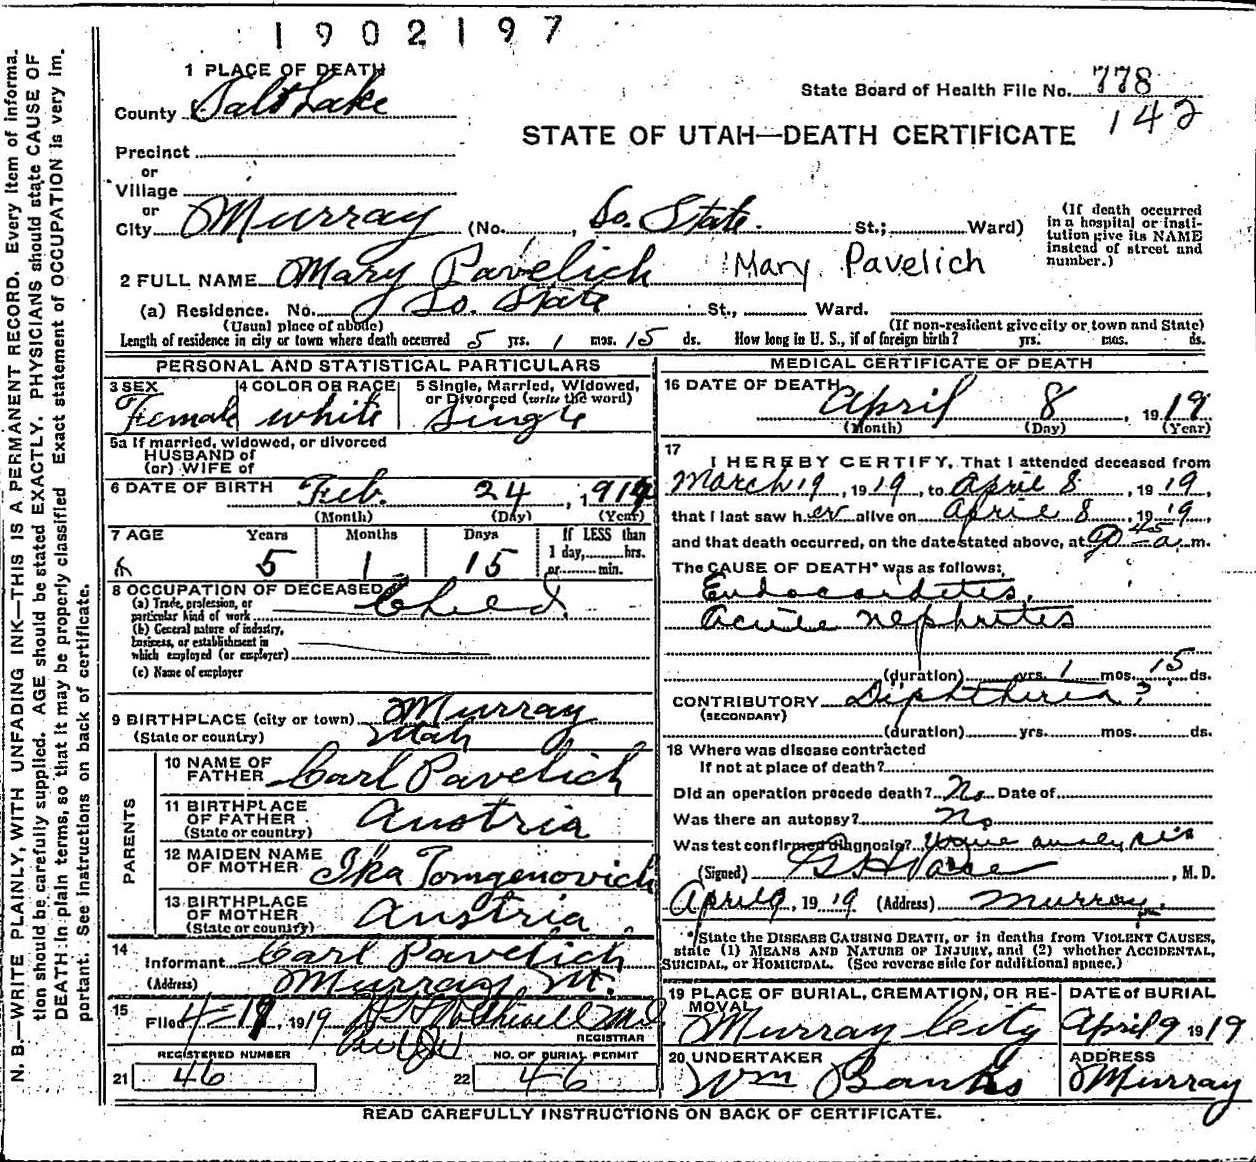 1902197
1 PLACE OF DEATH
County Salt Lake
State Board of Health File No. 778
142
STATE OF UTAH—DEATH CERTIFICATE
Precinct
or
Village
or
City Murray (No. , So. State. St.; Ward)
(If death occurred in a hospital or institution give its NAME instead of street and number.)
2 FULL NAME Mary Pavelich Mary Pavelich
(a) Residence. No. So. State St., Ward.
(Usual place of abode) (If non-resident give city or town and State)
Length of residence in city or town where death occurred 5 yrs. 1 mos. 15 ds. How long in U. S., if of foreign birth? yrs. mos. ds.
PERSONAL AND STATISTICAL PARTICULARS
3 SEX Female
4 COLOR OR RACE white
5 Single, Married, Widowed, or Divorced (write the word) Single
5a If married, widowed, or divorced
HUSBAND of
(or) WIFE of
6 DATE OF BIRTH Feb. 24, 1914
(Month) (Day) (Year)
7 AGE Years Months Days If LESS than
5 1 15 1 day, hrs.
or min.
8 OCCUPATION OF DECEASED Child
(a) Trade, profession, or
particular kind of work
(b) General nature of industry,
business, or establishment in
which employed (or employer)
(c) Name of employer
9 BIRTHPLACE (city or town) Murray
(State or country) Utah
PARENTS
10 NAME OF FATHER Carl Pavelich
11 BIRTHPLACE OF FATHER (State or country) Austria
12 MAIDEN NAME OF MOTHER Ika Tomgenovich
13 BIRTHPLACE OF MOTHER (State or country) Austria
14 Informant Carl Pavelich
(Address) Murray Ut.
15 Filed 4-19, 1919
REGISTRAR
REGISTERED NUMBER
21 46
NO. OF BURIAL PERMIT
22 46
MEDICAL CERTIFICATE OF DEATH
16 DATE OF DEATH April 8, 1919
(Month) (Day) (Year)
17
I HEREBY CERTIFY, That I attended deceased from
March 19, 1919, to April 8, 1919,
that I last saw her alive on April 8, 1919,
and that death occurred, on the date stated above, at a m.
The CAUSE OF DEATH* was as follows:
Endocarditis.
Acute Nephritis
(duration) yrs. 1 mos. 15 ds.
CONTRIBUTORY Diphtheria?
(SECONDARY)
(duration) yrs. mos. ds.
18 Where was disease contracted
If not at place of death?
Did an operation precede death? No Date of
Was there an autopsy? No
Was test confirmed diagnosis? Urine analysis
(Signed) , M. D.
April 9, 1919 (Address) Murray
*State the DISEASE CAUSING DEATH, or in deaths from VIOLENT CAUSES,
state (1) MEANS AND NATURE OF INJURY, and (2) whether ACCIDENTAL,
SUICIDAL, or HOMICIDAL. (See reverse side for additional space.)
19 PLACE OF BURIAL, CREMATION, OR REMOVAL Murray City
DATE of BURIAL April 9 1919
20 UNDERTAKER Wm Banks
ADDRESS Murray
READ CAREFULLY INSTRUCTIONS ON BACK OF CERTIFICATE.
N. B.—WRITE PLAINLY, WITH UNFADING INK—THIS IS A PERMANENT RECORD. Every item of informa.
tion should be carefully supplied. AGE should be stated EXACTLY. PHYSICIANS should state CAUSE OF
DEATH in plain terms, so that it may be properly classified Exact statement of OCCUPATION is very im.
portant. See instructions on back of certificate.